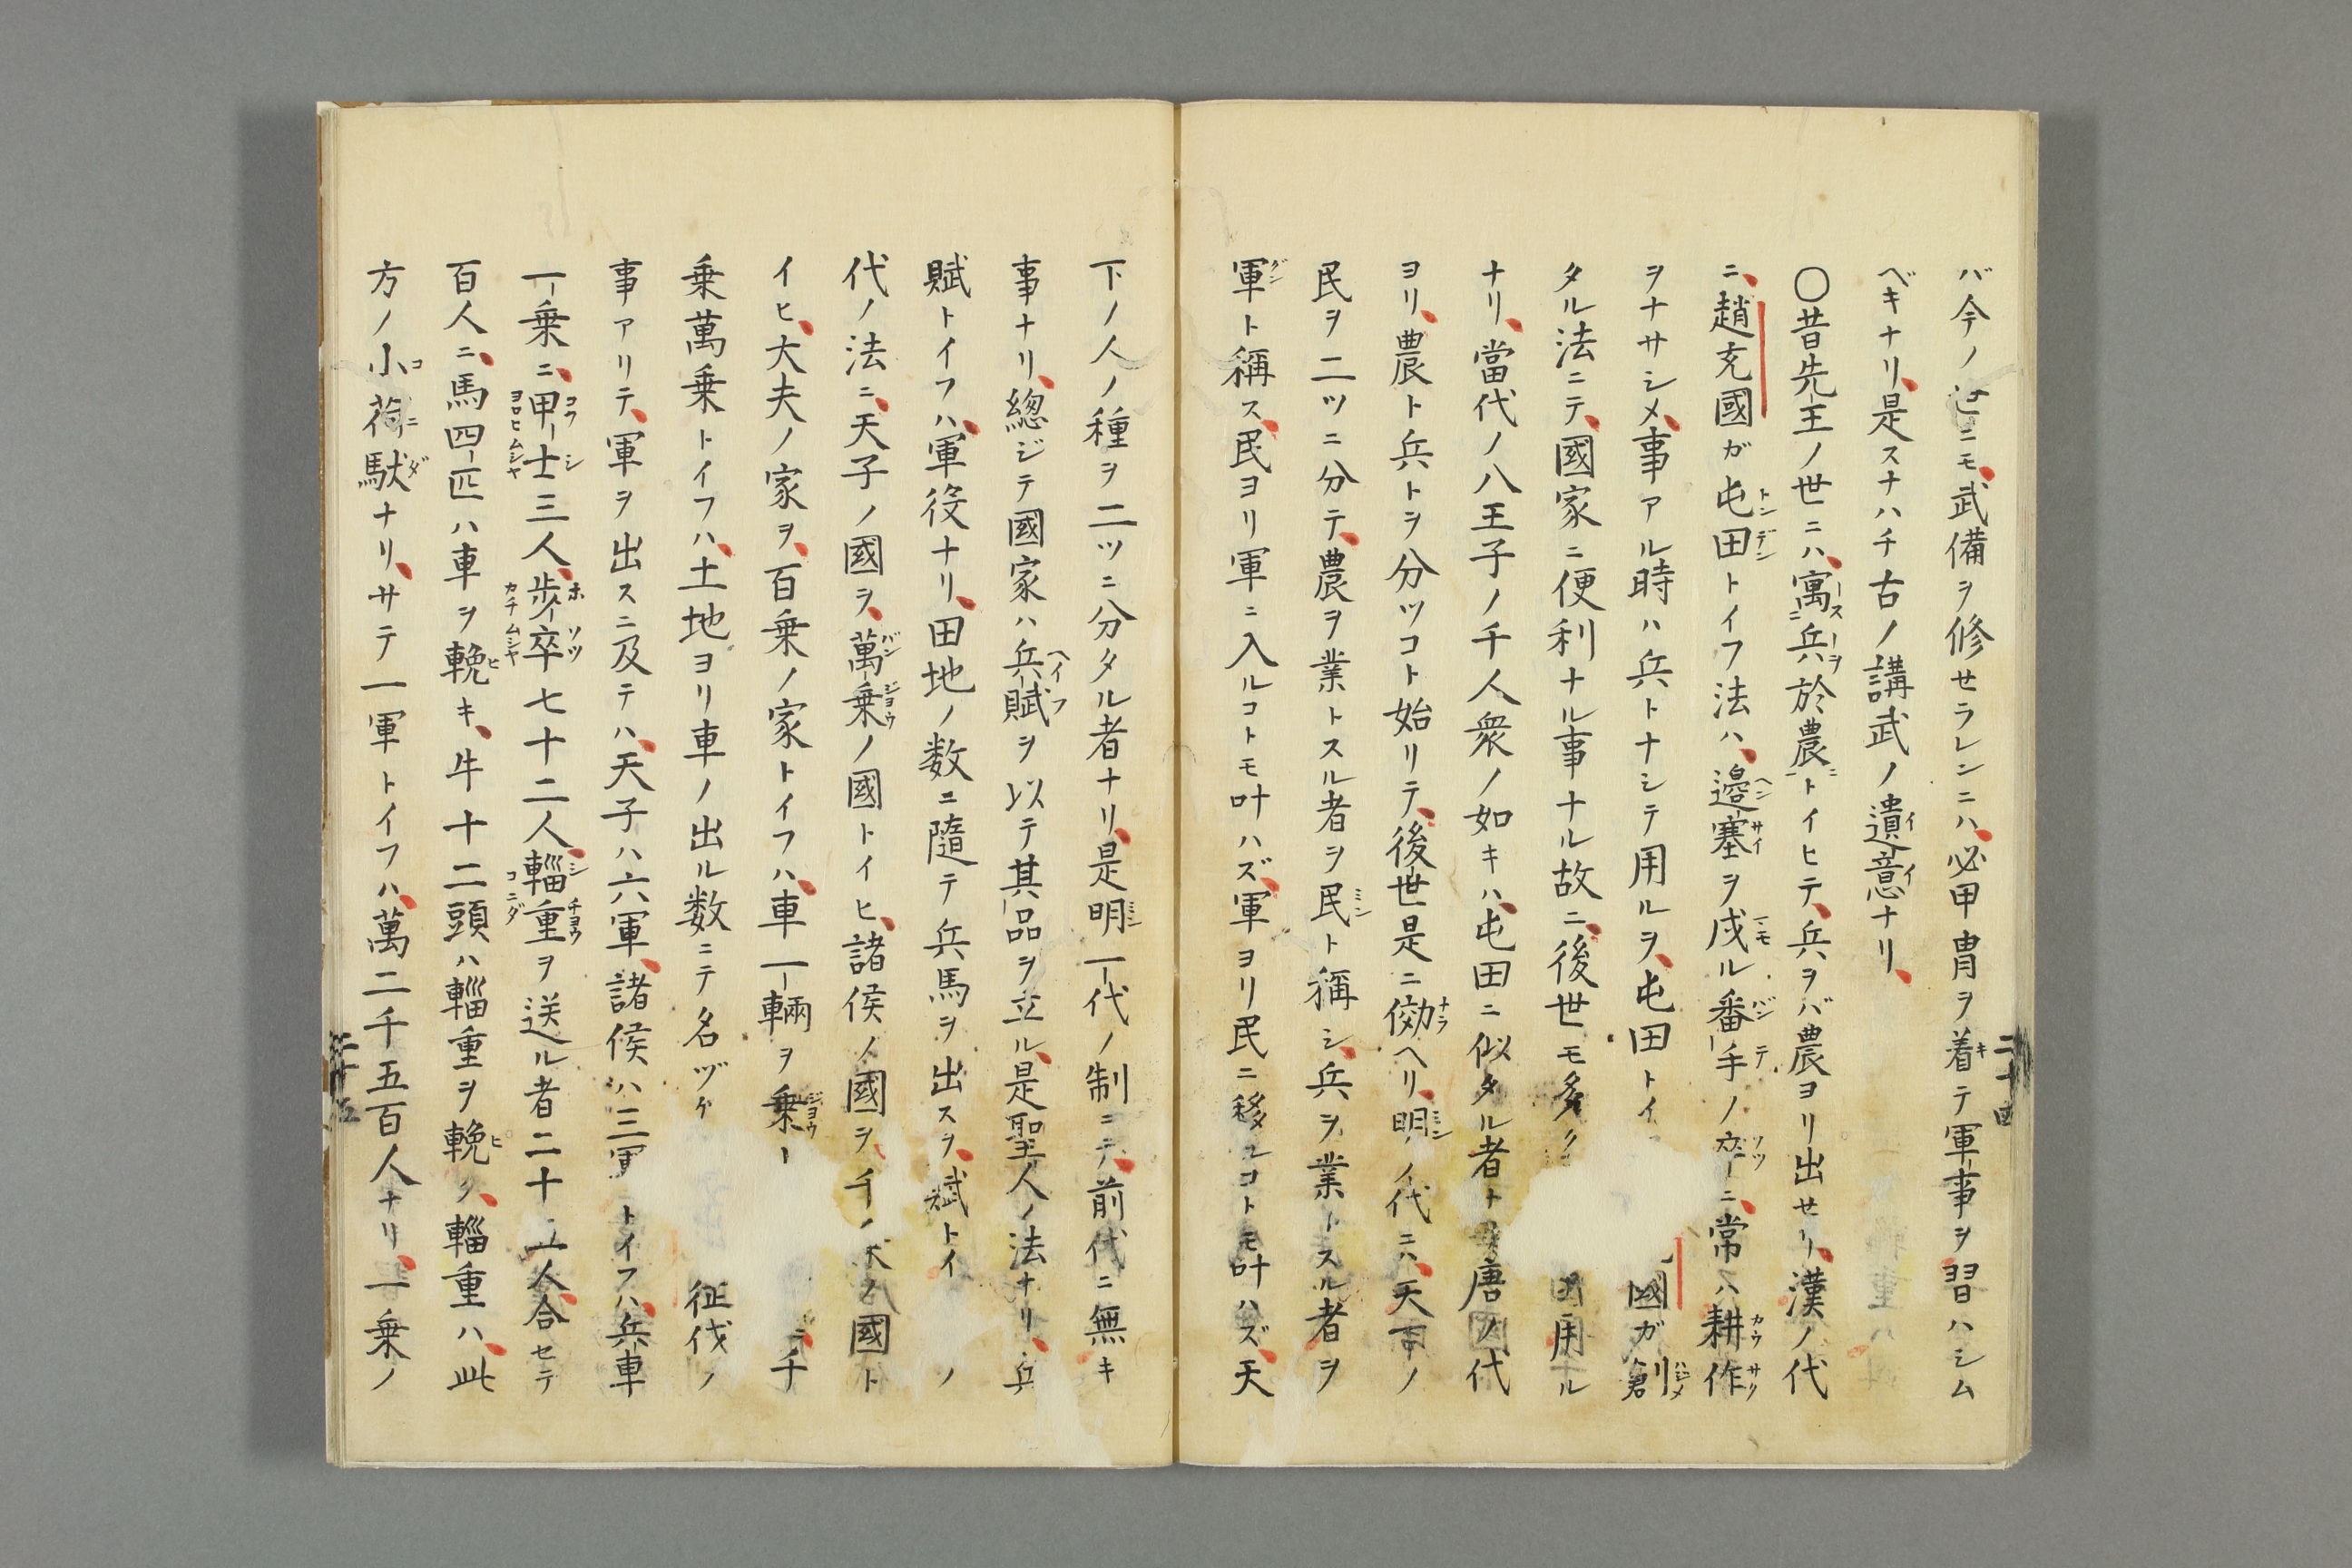 バ今ノ世ニモ、武備ヲ修セラレンニハ、必甲冑ヲ着テ軍事ヲ習ハシム
ベキナリ、是スナハチ古ノ講武ノ遺意ナリ、
〇昔先王ノ世ニハ、寓兵於農トイヒテ、兵ヲバ農ヨリ出セリ、漢ノ代
ニ、趙充國ガ屯田トイフ法ハ、邉塞ヲ戍ル番手ノ卒ニ、常ハ耕作
ヲナサシメ、事アル時ハ兵トナシテ用ルヲ、屯田トイ 國ガ創
タル法ニテ、國家ニ便利ナル事ナル故ニ、後世モ多ク 用ル
ナリ、當代ノ八王子ノ千人衆ノ如キハ、屯田ニ似タル者ナ 唐ノ代
ヨリ、農ト兵トヲ分ツコト始リテ、後世是ニ傚ヘリ、明ノ代ニハ、天下ノ
民ヲ二ツニ分テ、農ヲ業トスル者ヲ民ト稱シ、兵ヲ業トスル者ヲ
軍ト稱ス、民ヨリ軍ニ入ルコトモ叶ハズ、軍ヨリ民ニ移ルコトモ叶ハズ、天
二十四
下ノ人ノ種ヲ二ツニ分タル者ナリ、是明一代ノ制ニテ、前代ニ無キ
事ナリ、總ジテ國家ハ兵賦ヲ以テ其品ヲ立ル、是聖人ノ法ナリ、兵
賦トイフハ、軍役ナリ、田地ノ数ニ隨テ兵馬ヲ出スヲ、賦トイ ノ
代ノ法ニ、天子ノ國ヲ、萬乗ノ國トイヒ、諸侯ノ國ヲ、千 國ト
イヒ、大夫ノ家ヲ、百乗ノ家トイフハ、車一輛ヲ乗ト ニ、千
乗萬乗トイフハ、土地ヨリ車ノ出ル数ニテ名ヅケ 征伐ノ
事アリテ、軍ヲ出スニ及テハ、天子ハ六軍、諸侯ハ三軍トイフハ、兵車
一乗ニ、甲士三人、歩卒七十二人、輜重ヲ送ル者二十五人、合セテ
百人ニ、馬四匹ハ車ヲ輓キ、牛十二頭ハ輜重ヲ輓ク、輜重ハ、此
方ノ小荷駄ナリ、サテ一軍トイフハ、萬二千五百人ナリ、一乗ノ
二十五